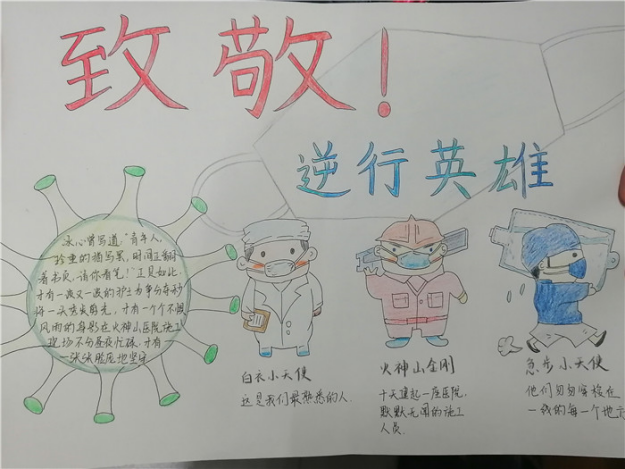 致敬!
逆行英雄
冰心曾写道:"青年人,
珍重的描写罢,时间正翻
着书页,请你着笔!"正是如此
才有一夜又一夜的护士为争分夺秒
将一头秀发剪光,才有一个个不畏
风雨的身影在火神山医院施工
现场不分昼夜忙碌,才有一
张张脸庞地坚守
白衣小天使
这是我们最熟悉的人.
火神山金刚
十天建起一座医院,
默默无闻的施工
人员.
急步小天使
他们匆匆穿梭在
一线的每一个地方